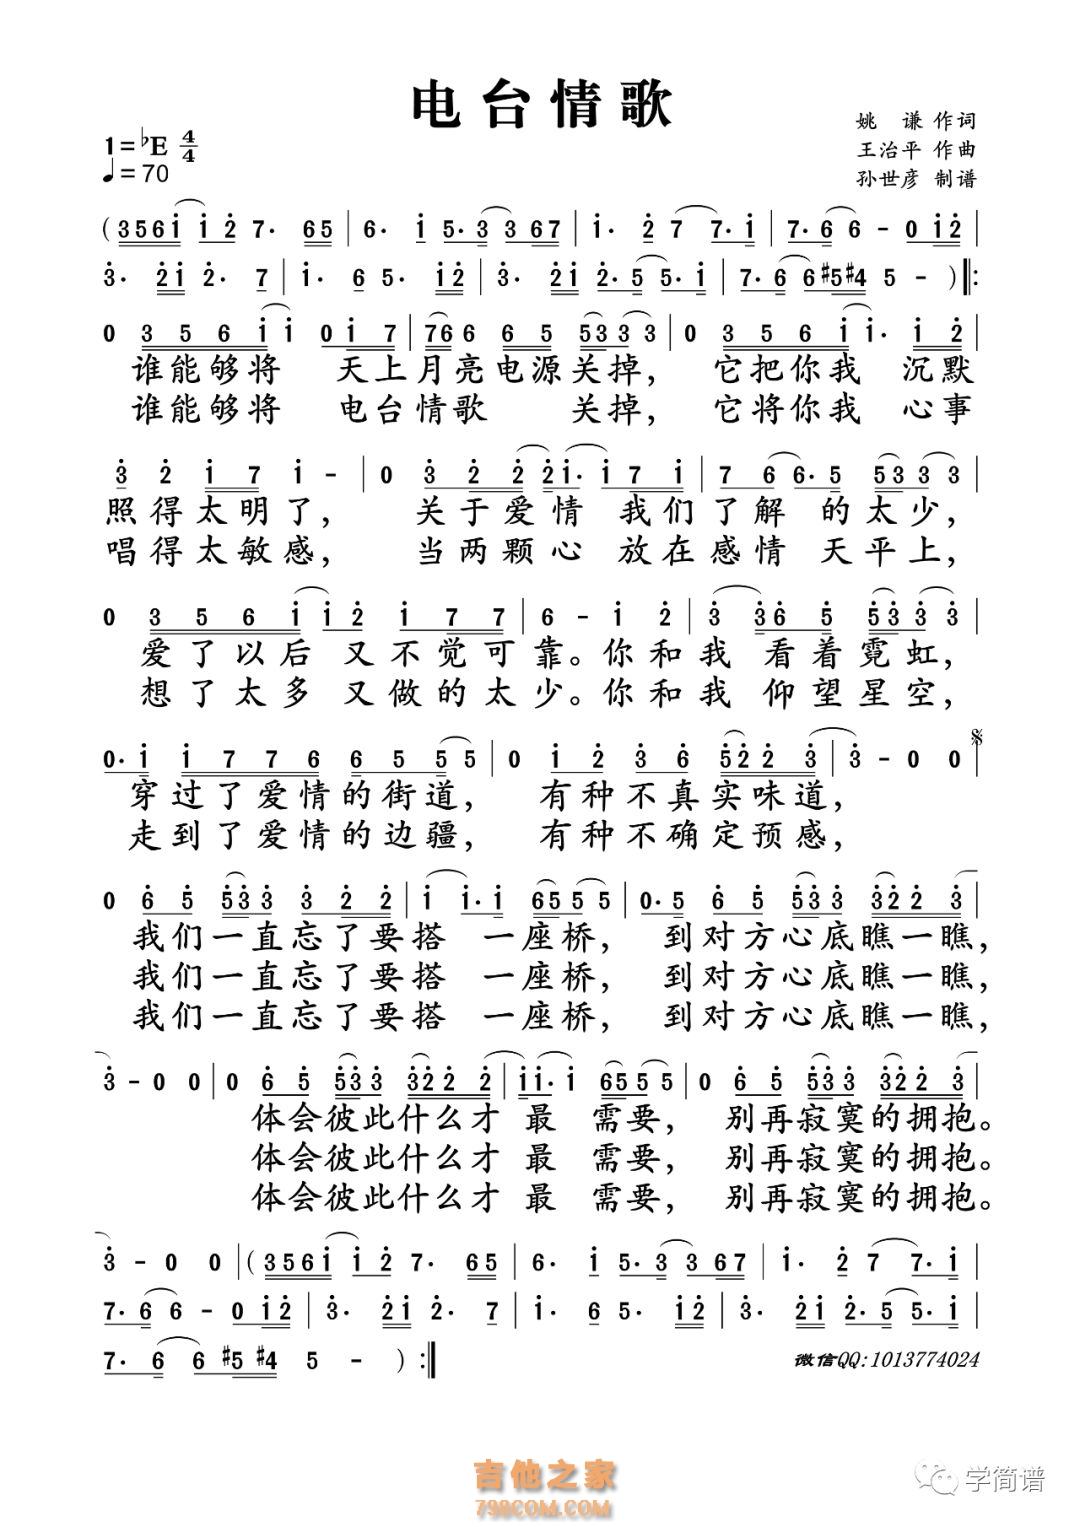 电台情歌
姚 谦 作词
王治平 作曲
孙世彦 制谱
1=♭E 4/4
♩=70
(3561 12 7· 65 | 6· 1 5·3 367 | 1· 2 7 7·1 | 7·6 6 - 012 |
3· 21 2· 7 | 1· 6 5· 12 | 3· 21 2·5 5·1 | 7·6 6#5#4 5 - ) ‖:
0 3561 1 017 | 766 65 533 3 | 0 3561 1· 12 |
谁能够将 天上月亮电源关掉， 它把你我 沉默
谁能够将 电台情歌 关掉， 它将你我 心事
3 2 17 1 - | 0 322 21· 171 | 7 66· 5 533 3 |
照得太明了， 关于爱情 我们了解 的太少，
唱得太敏感， 当两颗心 放在感情 天平上，
0 3561 12 177 | 6 - 1 2 | 3 36 5 533 3 |
爱了以后 又不觉可靠。你和我 看着霓虹，
想了太多 又做的太少。你和我 仰望星空，
0·1 1776 655 5 | 0 12 36 5223 | 3 - 0 0 𝄋
穿过了爱情的街道， 有种不真实味道，
走到了爱情的边疆， 有种不确定预感，
0 65 533 322 | 1 1·1 655 5 | 0·5 65 533 3223 |
我们一直忘了要搭 一座桥， 到对方心底瞧一瞧，
我们一直忘了要搭 一座桥， 到对方心底瞧一瞧，
我们一直忘了要搭 一座桥， 到对方心底瞧一瞧，
3 - 0 0 | 0 65 533 3222 | 11·1 655 5 | 0 65 533 3223
体会彼此什么才 最 需要， 别再寂寞的拥抱。
体会彼此什么才 最 需要， 别再寂寞的拥抱。
体会彼此什么才 最 需要， 别再寂寞的拥抱。
3 - 0 0 | (3561 12 7· 65 | 6· 1 5·3 367 | 1· 2 7 7·1 |
7·6 6 - 012 | 3· 21 2· 7 | 1· 6 5· 12 | 3· 21 2·5 5·1 |
7·6 6#5#4 5 - ) :‖
微信QQ:1013774024
吉他之家
798COM.COM
学简谱